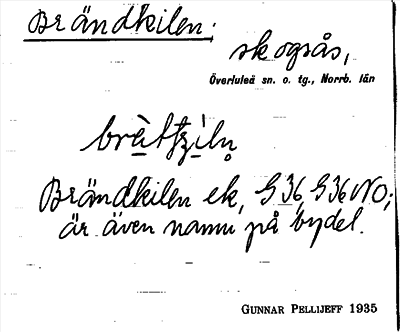 Brändkilen:
skogsås,
Överluleå sn. o. tg., Norrb. län
Brändkilen ek, G 36, G 36 NO;
är även namn på bydel.
GUNNAR PELLIJEFF 1935